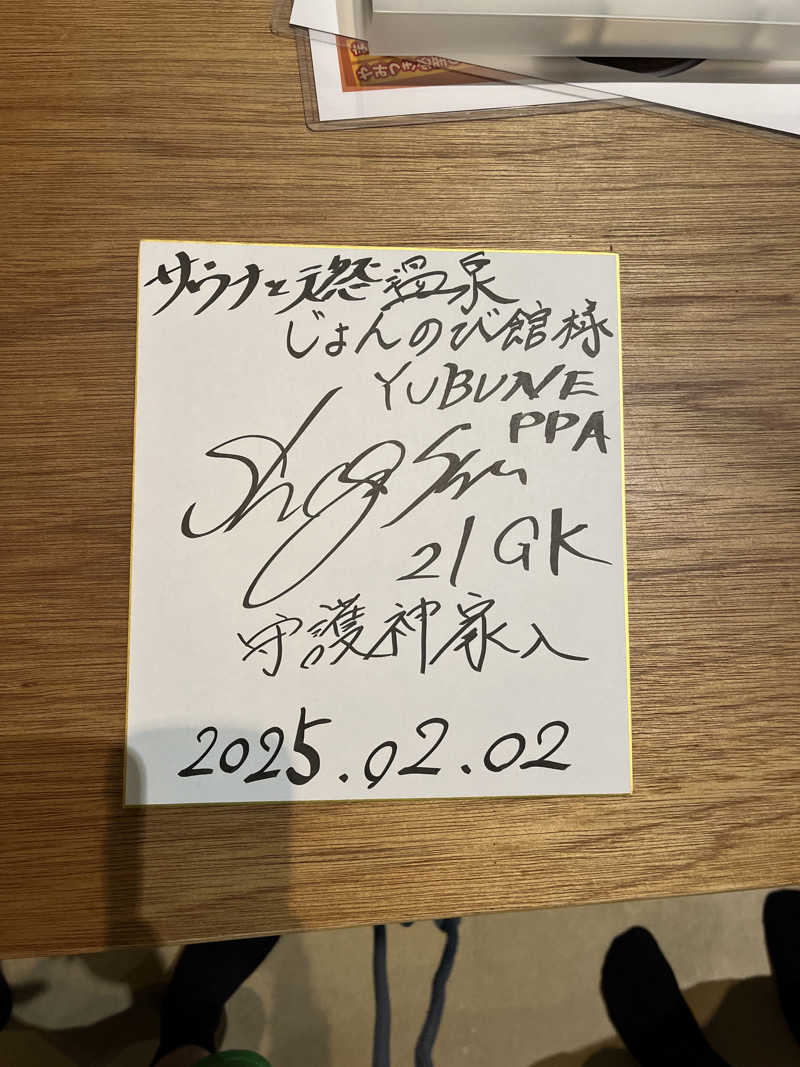 やみつき
サウナと天然温泉
じょんのび館様
YUBUNE
PPA
21 GK
守護神家入
2025.02.02